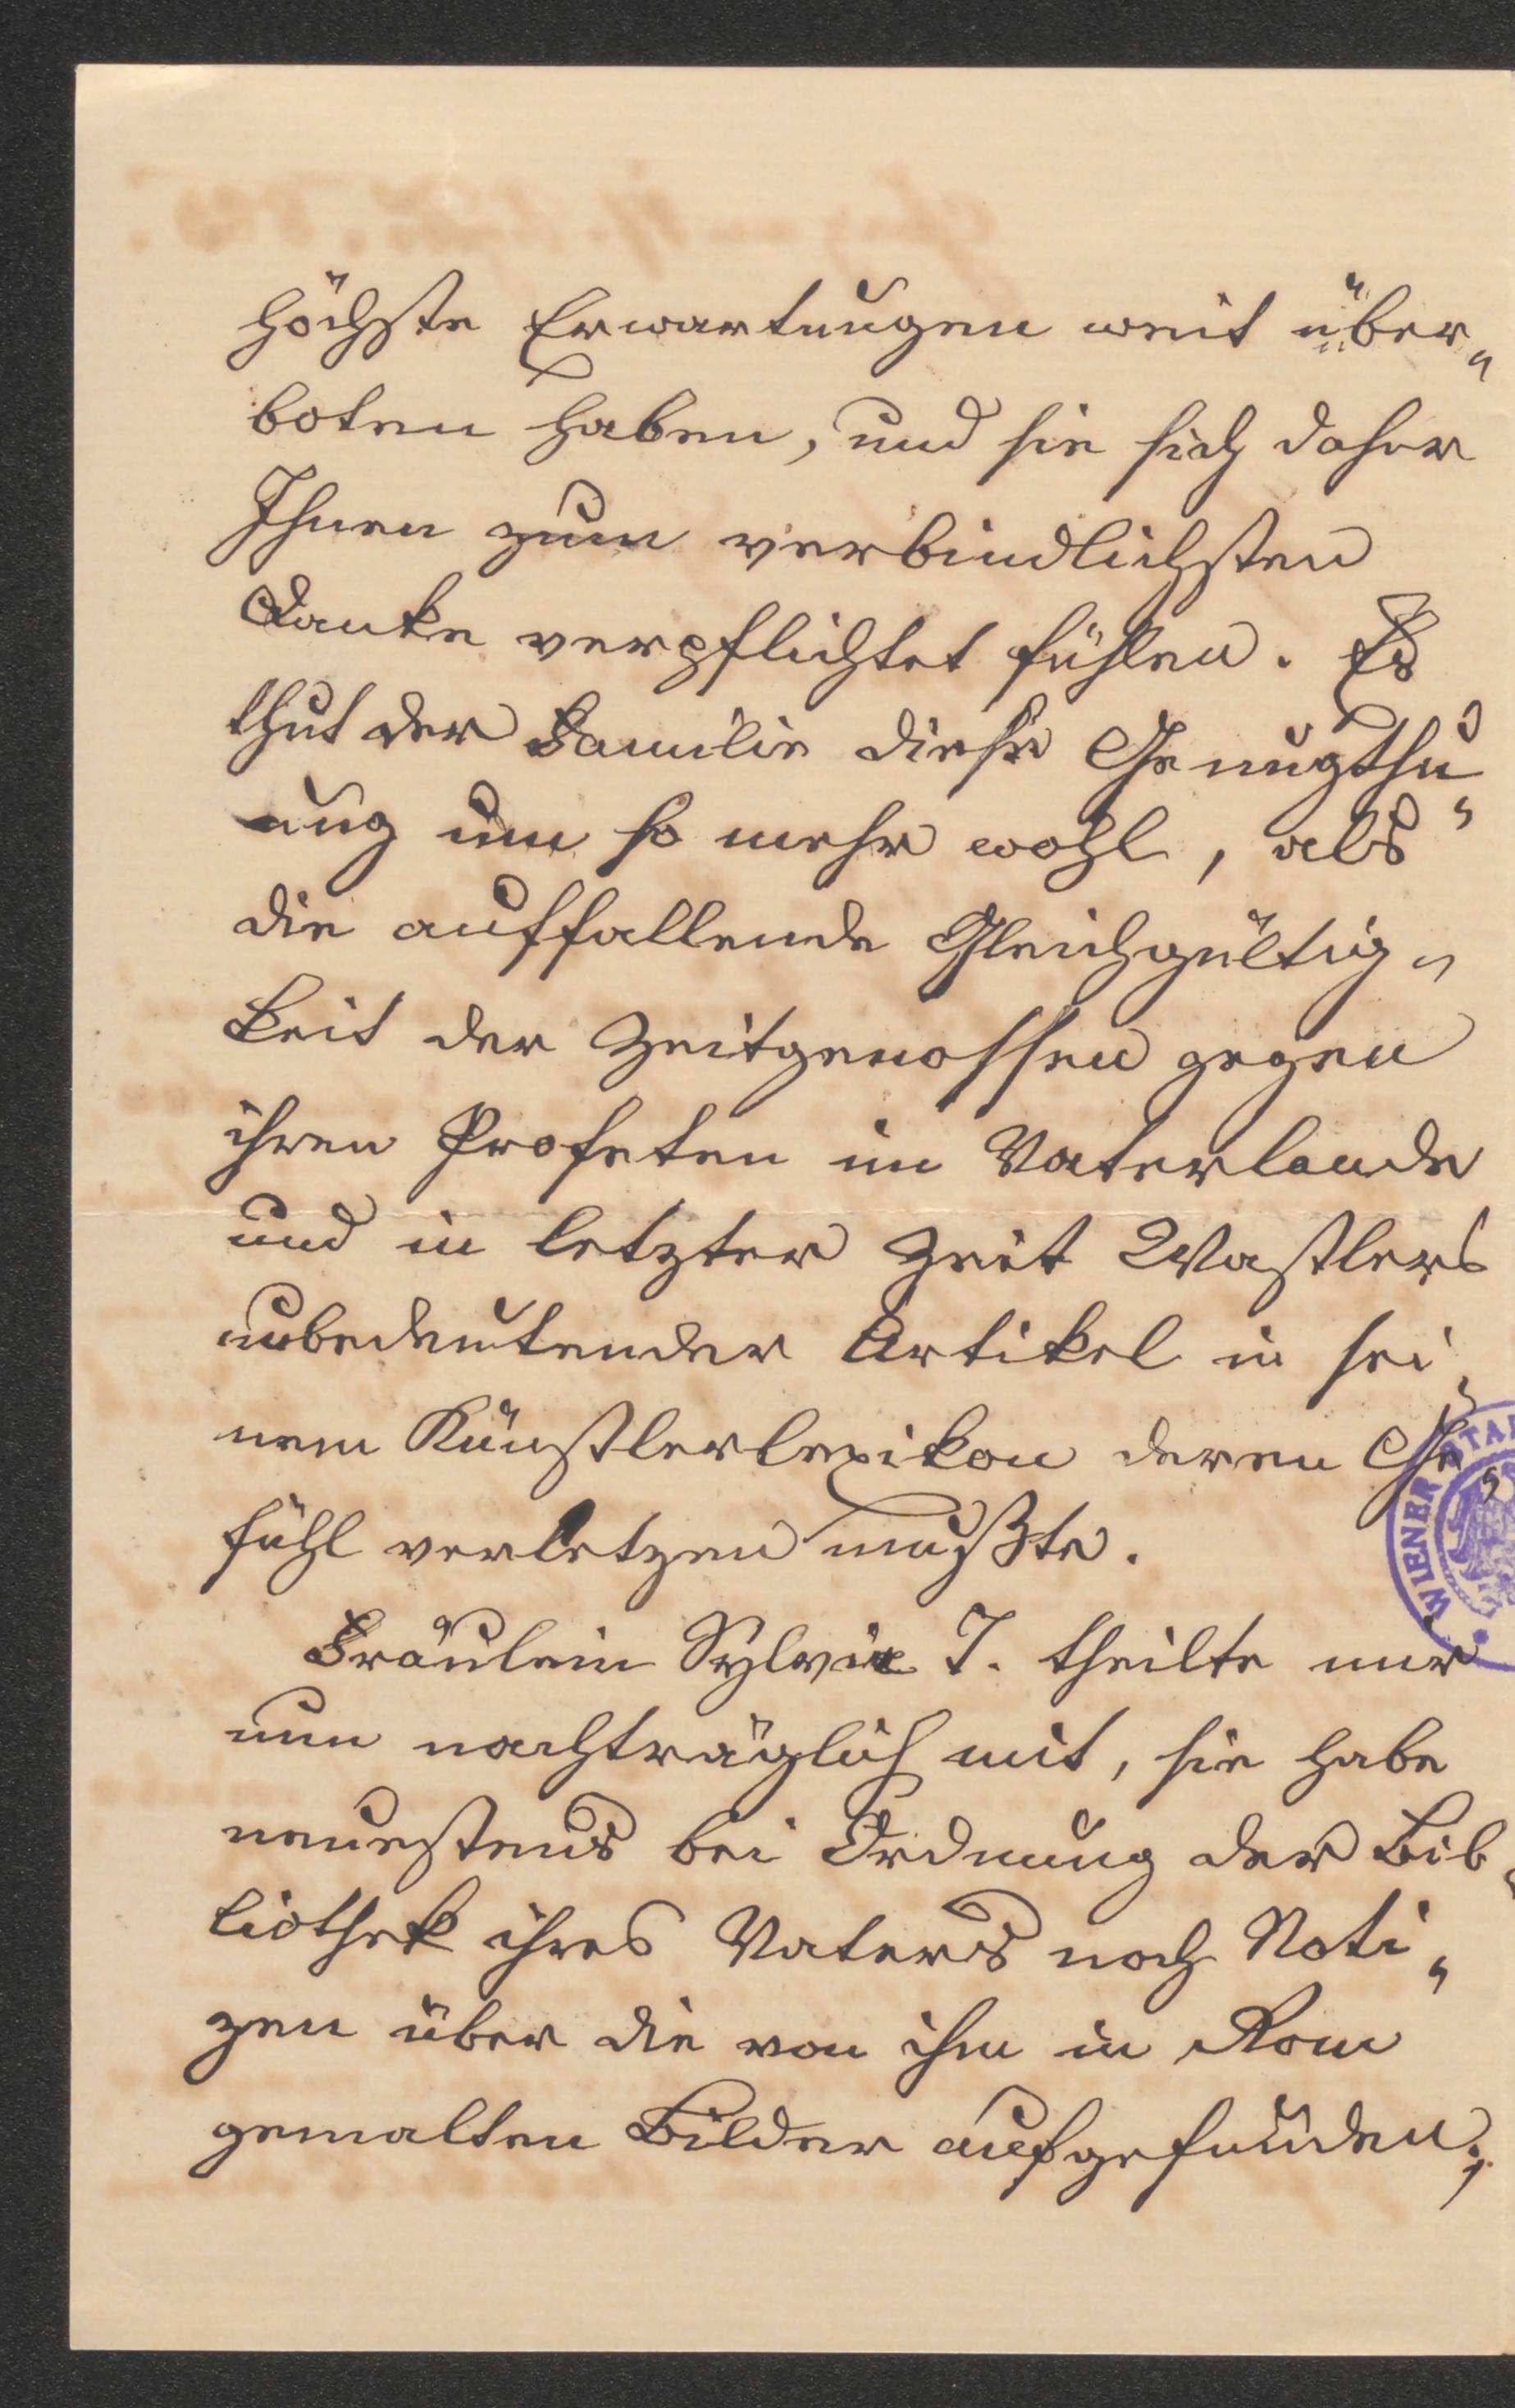 höchste Erwartungen weit über„
boten haben, und sie sich daher
Ihnen zum verbindlichsten
Danke verpflichtet fühlen. Es
thut der Familie diese Genugthu„
ung um so mehr wohl, als
die auffallende Gleichgültig„
keit der Zeitgenossen gegen
ihren Profeten im Vaterlande
und in letzter Zeit Wastlers
unbedeutender Artikel in sei„
nem Künstlerlexikon deren Ge„
fühl verletzen mußte.
Fräulein Sylvie T. theilte mir
nun nachträglich mit, sie habe
neuestens bei Ordnung der Bib„
liothek ihres Vaters noch Noti„
zen über die von ihm in Rom
gemalten Bilder aufgefunden;
WIENER STA